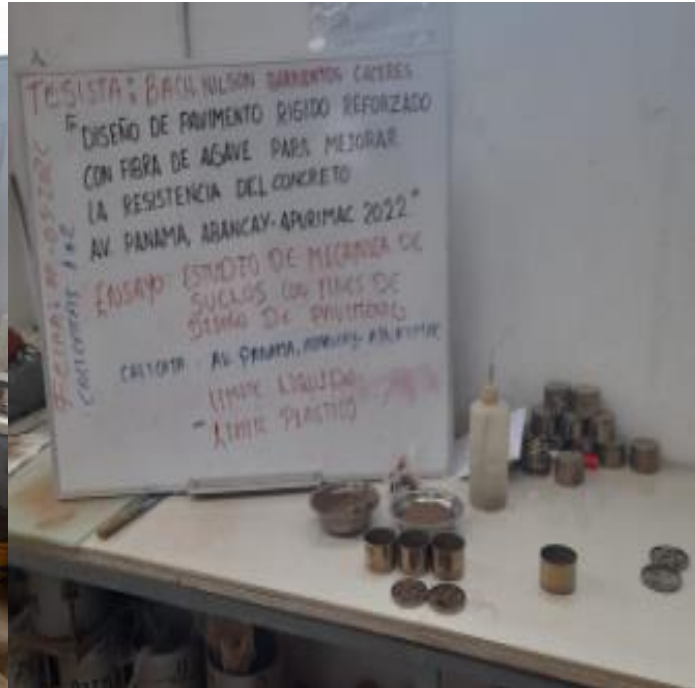 TESISTA: BACH. NILSON BARRIENTOS CACERES
"DISEÑO DE PAVIMENTO RIGIDO REFORZADO
CON FIBRA DE AGAVE PARA MEJORAR
LA RESISTENCIA DEL CONCRETO
AV. PANAMA, ABANCAY-APURIMAC 2022"
ENSAYO: ESTUDIO DE MECANICA DE
SUELOS CON FINES DE
DISEÑO DE PAVIMENTO
CALICATA: AV. PANAMA, ABANCAY-APURIMAC
LIMITE LIQUIDO
- LIMITE PLASTICO
FECHA:
CALICATAS 1 2